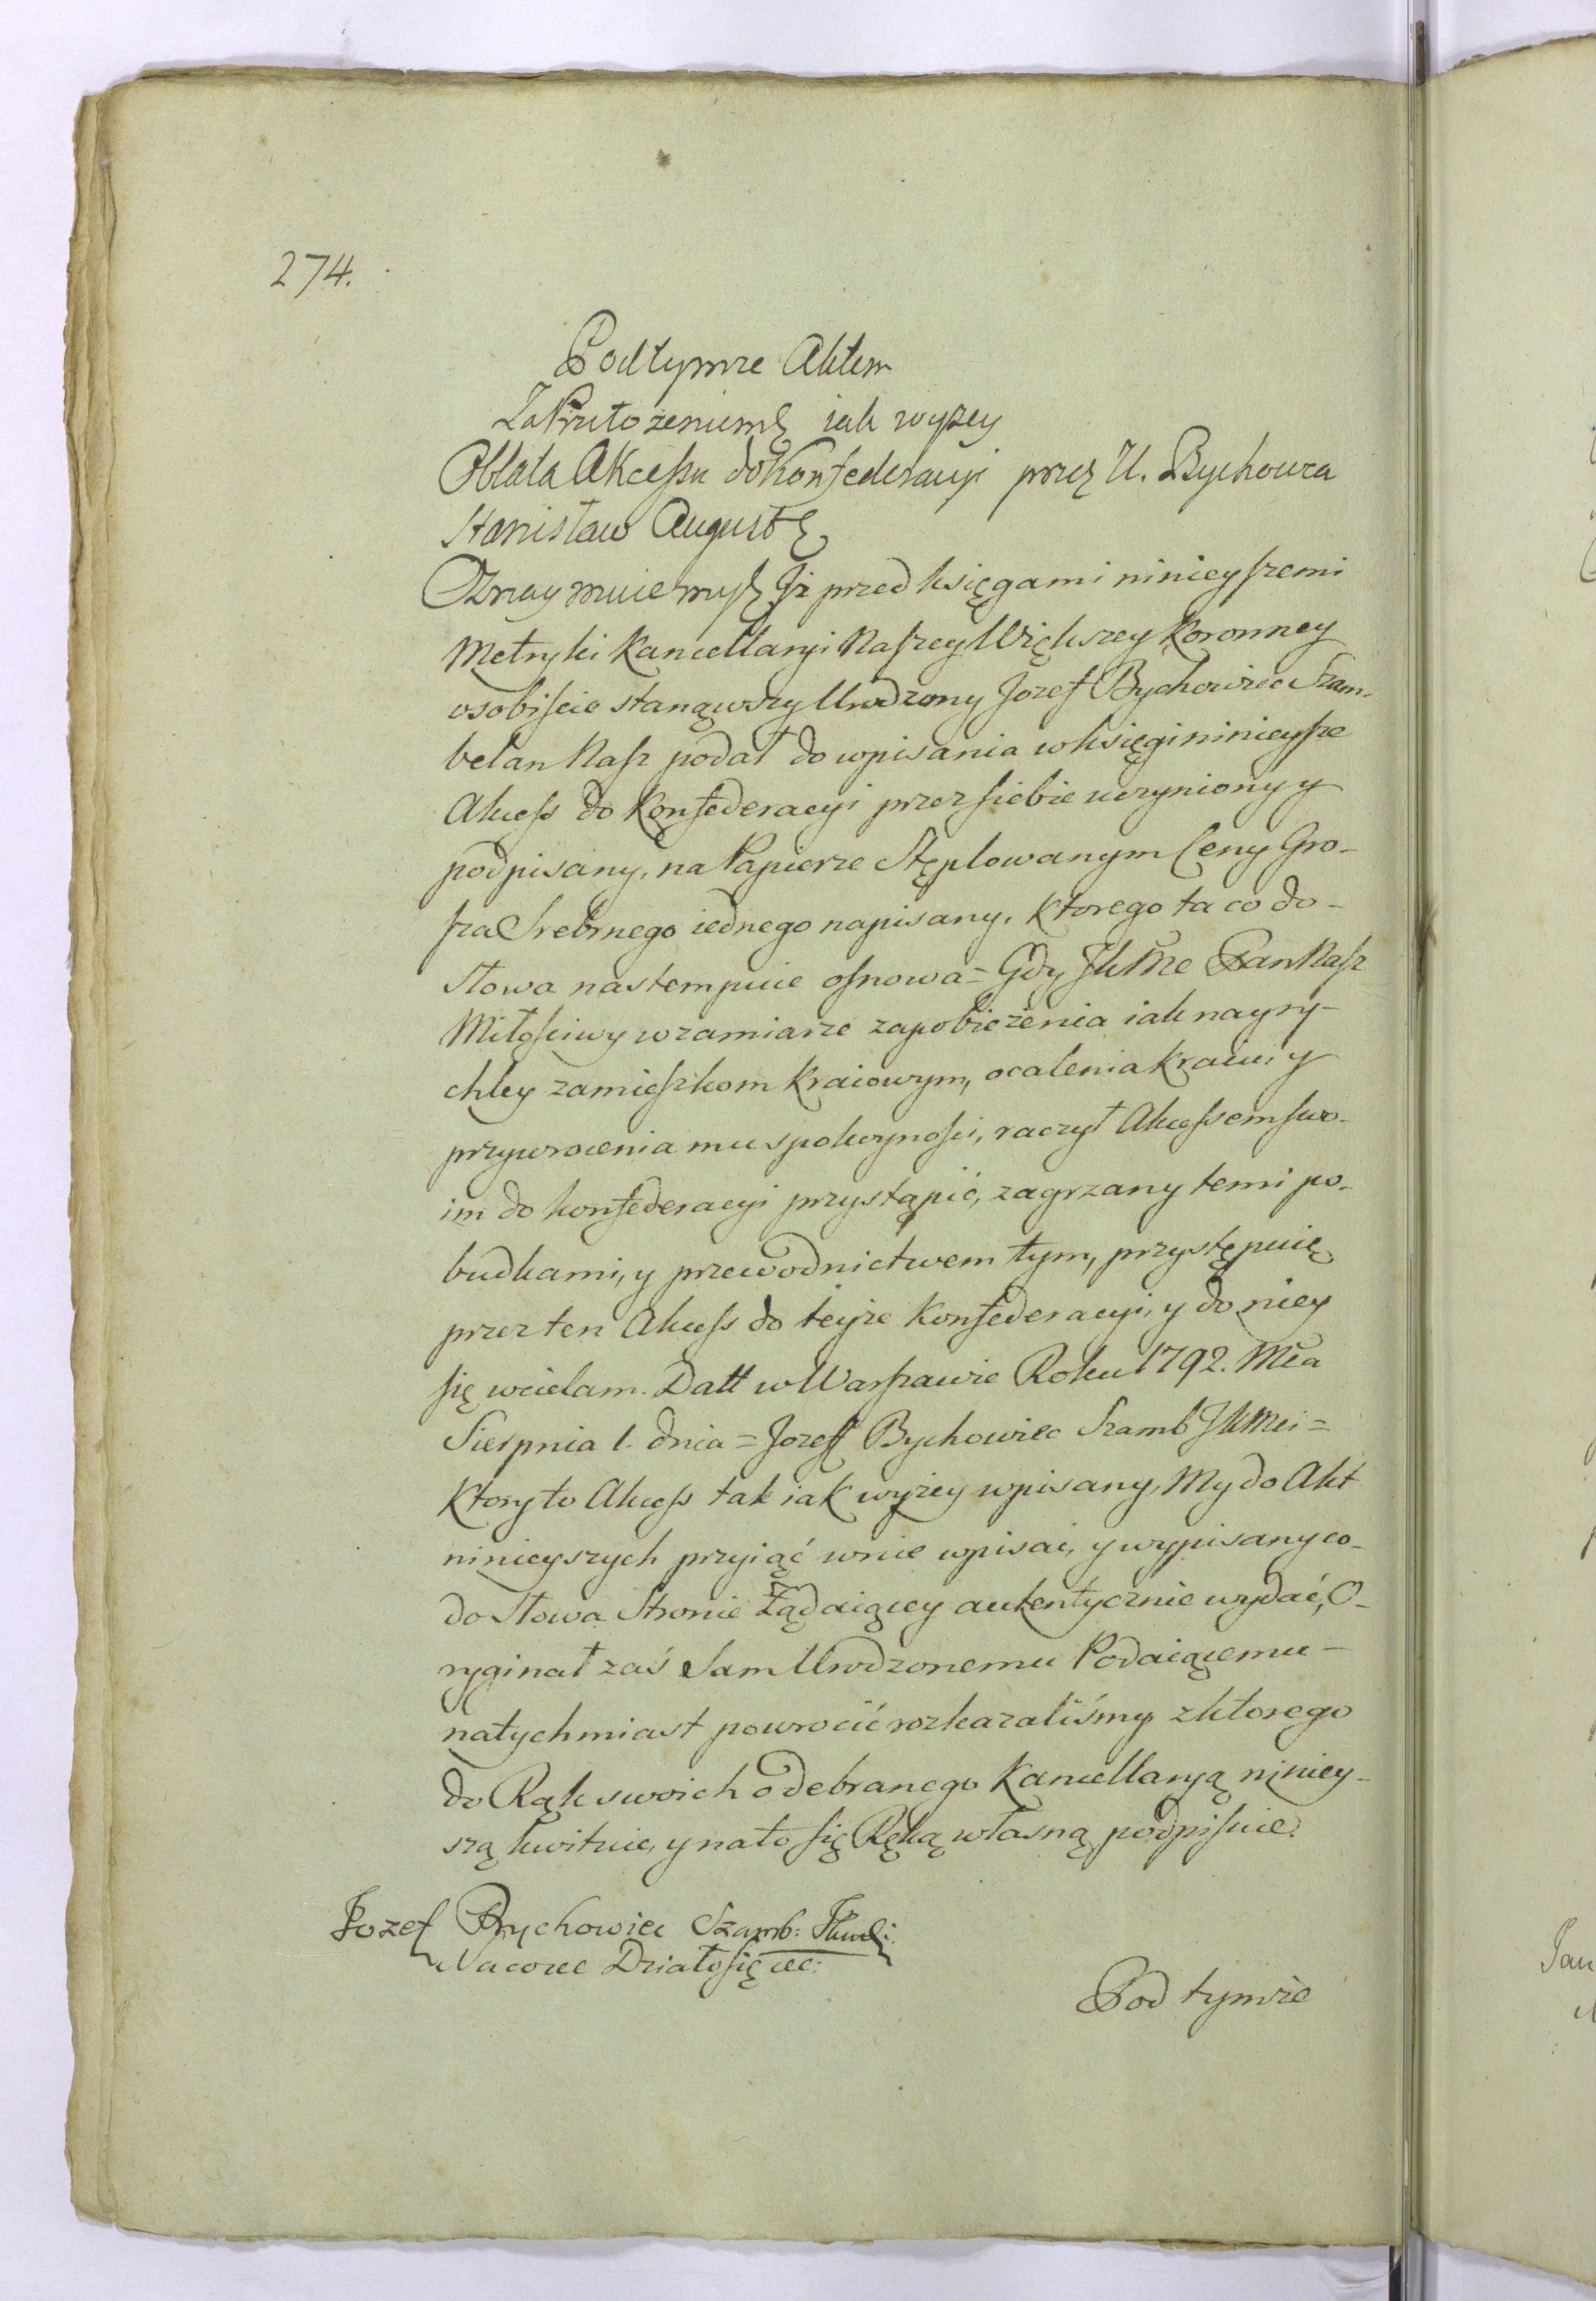 274.
Pod tymże Aktem
Za Przełożeniem &c iak wyżey
Oblata Akcessu do Konfederacyi przez U. Bychowca
Stanisław August &c
Oznaymuiemy &c Iż przed księgami ninieyszemi
Metryki Kancellaryi Naszey Większey Koronney
osobiście stanąwszy Urodzony Jozef Bychowiec Szam-
belan Nasz podał do wpisania w księgi ninieysze
Akcess do Konfederacyi przez siebie uczyniony y
podpisany, na Papierze Stęplowanym Ceny Gro-
sza Srebrnego iednego napisany, Ktorego ta co do-
Słowa nastempuie osnowa = Gdy JKMc Pan Nasz
Miłościwy w zamiarze zapobieżenia iak nayry-
chley zamieszkom Kraiowym, ocalenia Kraiu, y
przywrocenia mu spokoyności, raczył Akcessem swo-
im do konfederacyi przystąpić, zagrzany temi po-
budkami, y przewodnictwem tym, przystępuię
przez ten Akcess do teyże Konfederacyi, y do niey
się wcielam. Datt w Warszawie Roku 1792. Mca
Sierpnia 1. dnia = Jozeff Bychowiec Szamb JKMci =
Ktory to Akcess tak iak wyżey wpisany, My do Akt
ninieyszych przyiąć w nie wpisać, y wypisany co-
do Słowa Stronie Żądaiącey autentycznie wydać, O-
ryginał zaś Sam Urodzonemu Podaiącemu -
natychmiast powrocić rozkazaliśmy z ktorego
do Rąk swoich odebranego Kancellaryą niniey-
szą kwituie, y na to się Ręką własną podpisuie.
Jozef Bychowiec Szamb: JKMci:
Na co zec Działo się &c:
Pod tymże